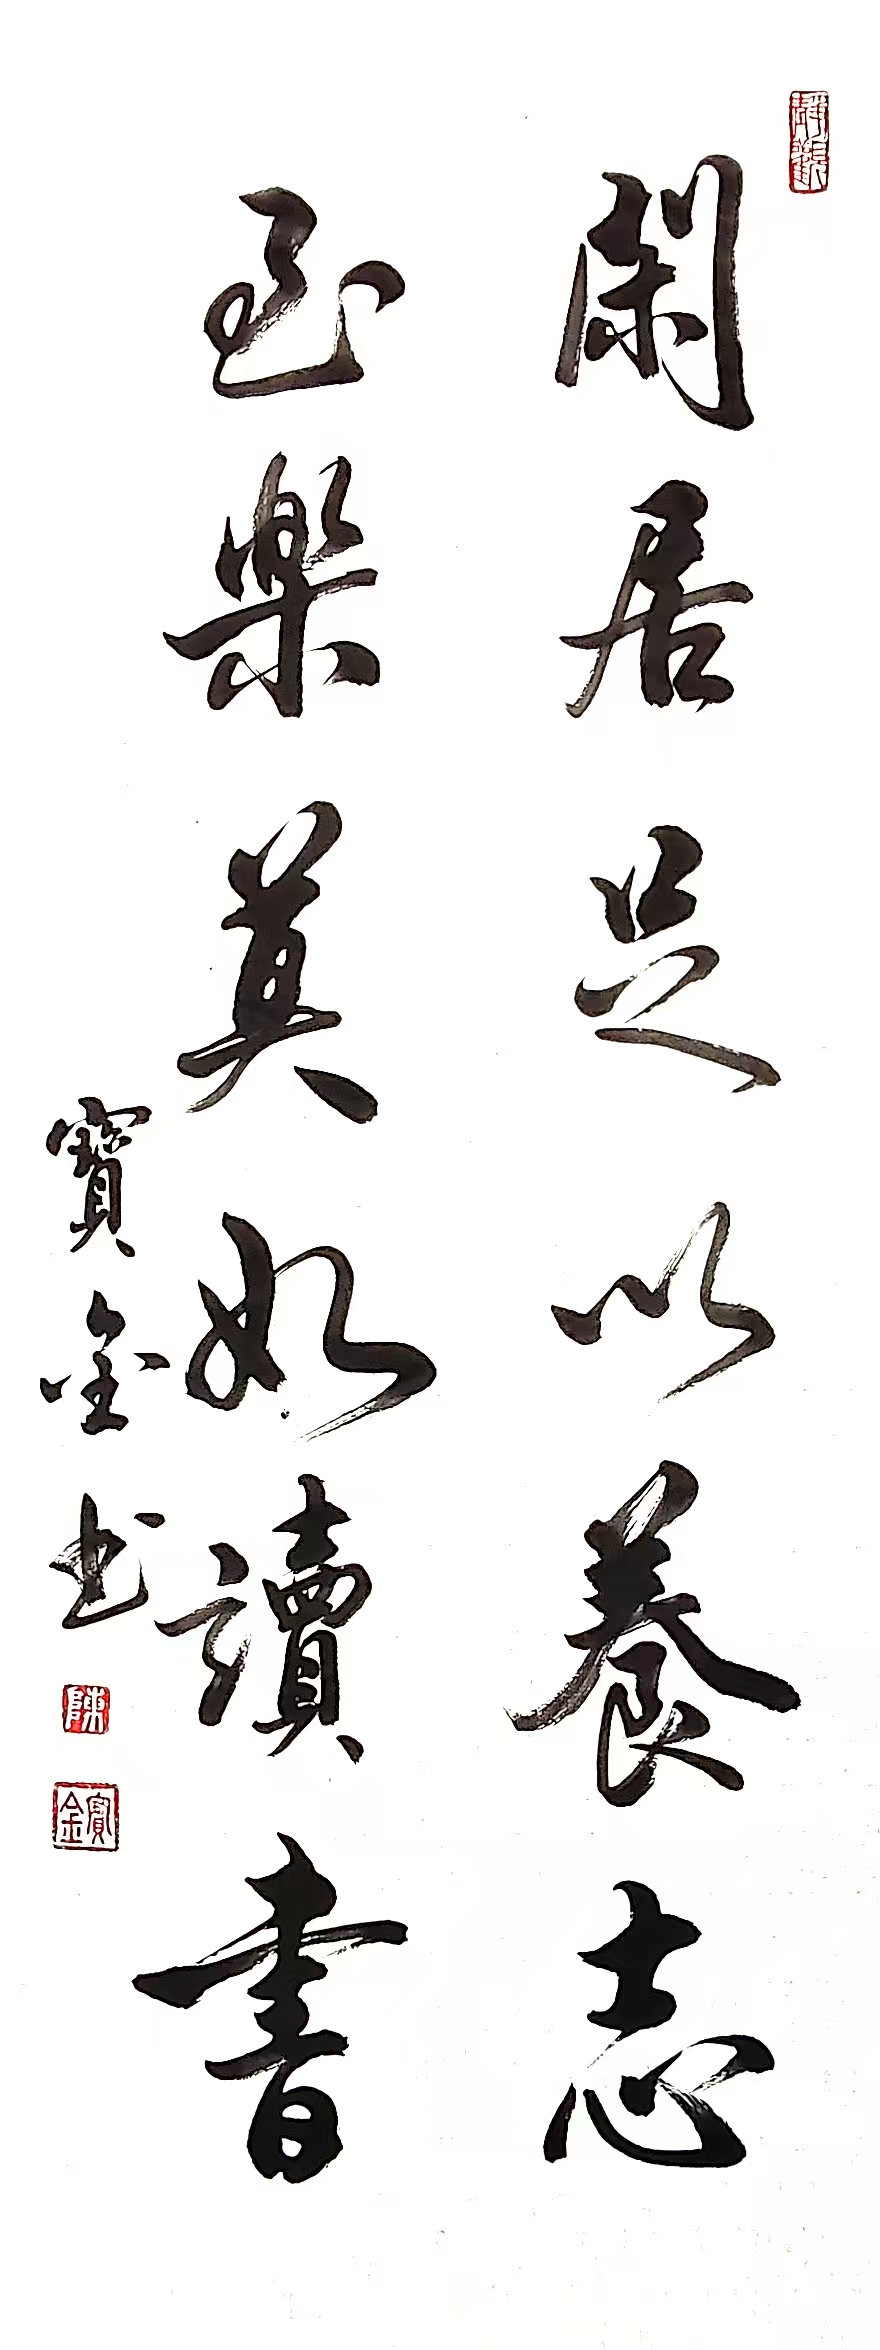 静觀
閑居足以養志
至樂莫如讀書
寶金书
陳
寶金